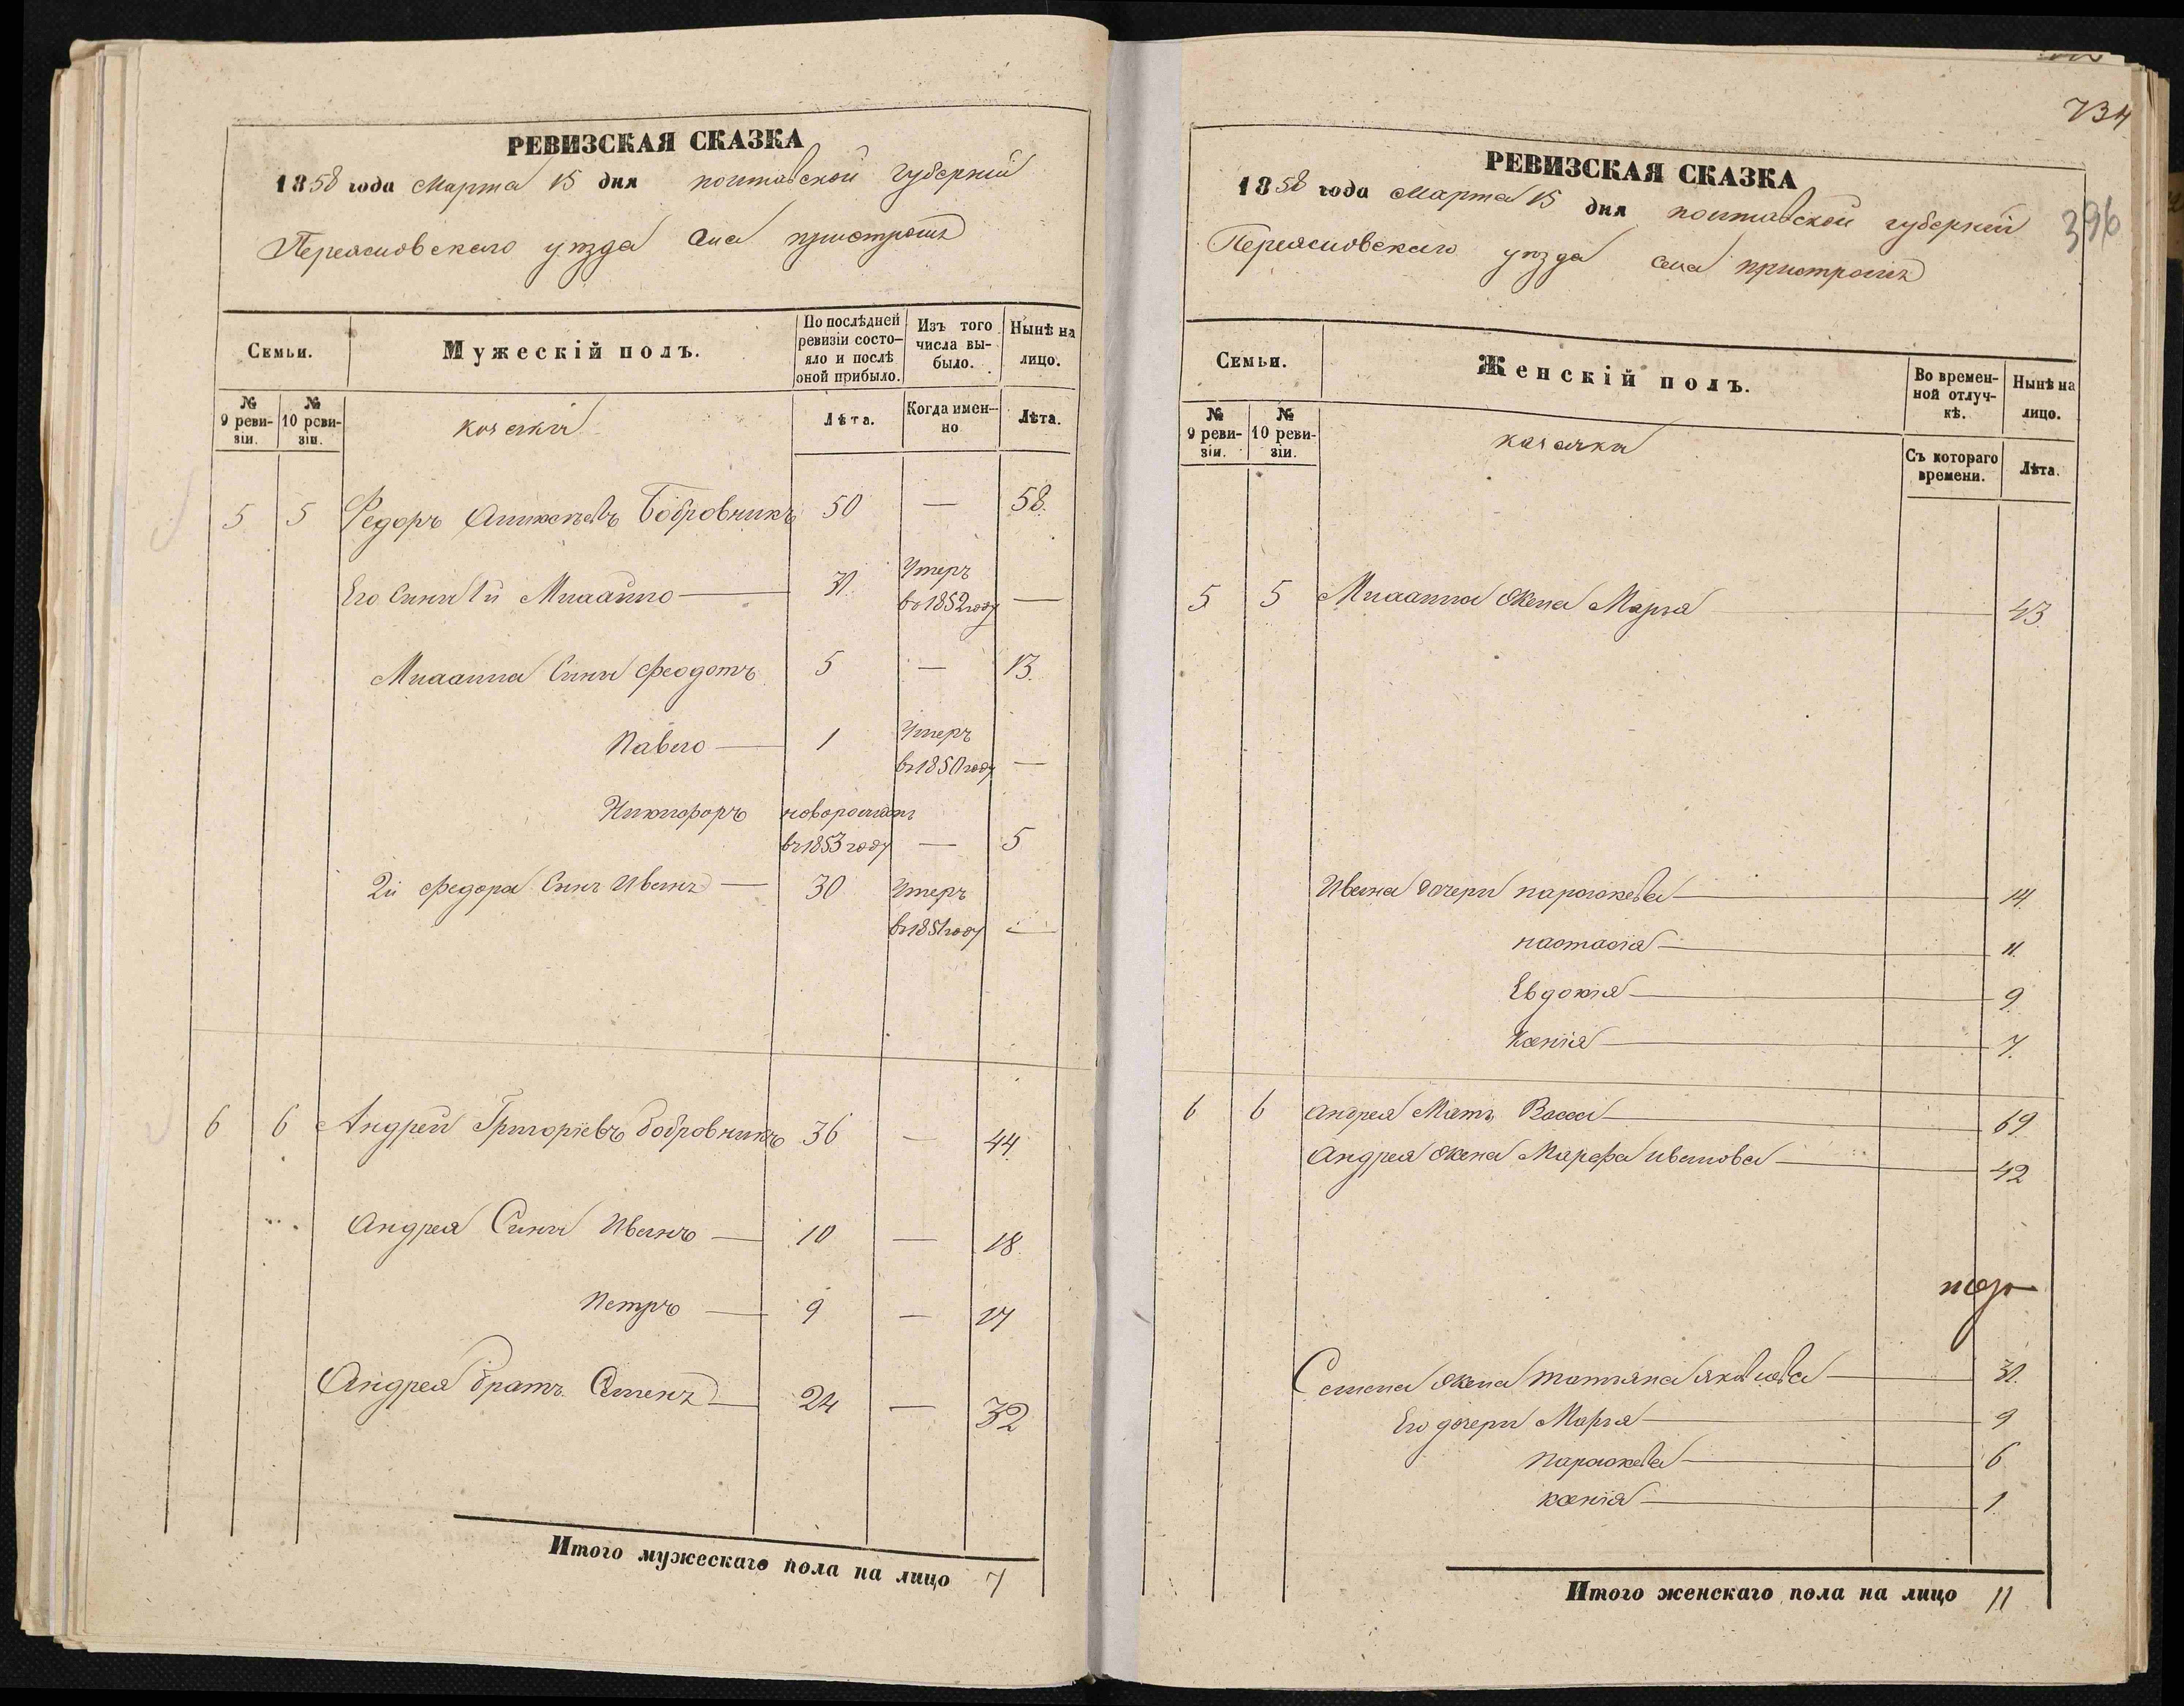 РЕВИЗСКАЯ СКАЗКА
1858 года Марта 15 дня полтавской губерніи
Переясловского уѣзда Села пристромъ
Семьи.
Мужескій полъ.
По послѣдней ревизіи состо-
яло и послѣ
оной прибыло.
Изъ того
числа вы-
было.
Нынѣ на
лицо.
№
9 реви-
зіи.
№
10 реви-
зіи.
козаки
Лѣта.
Когда имен-
но
Лѣта.
5 5 Федоръ Бобровникъ 50 — 58.
Его Сыны 1й 31. Умеръ
в 1852 году —
Сыны Феодотъ 5 — 13.
Павло — 1 Умеръ
въ 1850 году —
Никифоръ новорожденъ
въ 1853 году — 5
2й Федора Сынъ Иванъ — 30 Умеръ
въ 1851 году —
6 6 Андрей Григоріевъ бобровникъ 36 — 44.
Андрея Сыны Иванъ — 10 — 18.
Петръ — 9 — 17
Андрея братъ Семенъ — 24 — 32
Итого мужескаго пола на лицо 7
734
396
РЕВИЗСКАЯ СКАЗКА
1858 года Марта 15 дня полтавской губерніи
Переясловского уѣзда села пристромъ
Семьи.
Женскій полъ.
Во времен-
ной отлуч-
кѣ.
Нынѣ на
лицо.
№
9 реви-
зіи.
№
10 реви-
зіи.
казачки
Съ котораго
времени.
Лѣта.
5 5 жена Марія 43.
Ивана дочери параскева — 14.
настасія — 11.
Евдокія — 9.
Ксенія — 7.
6 6 андрея Мать Васса — 69.
Андрея жена Марфа иванова — 42
Семена жена татьяна яковлева — 31.
Его дочери Марія — 9
Параскева — 6
ксенія — 1.
Итого женскаго пола на лицо 11